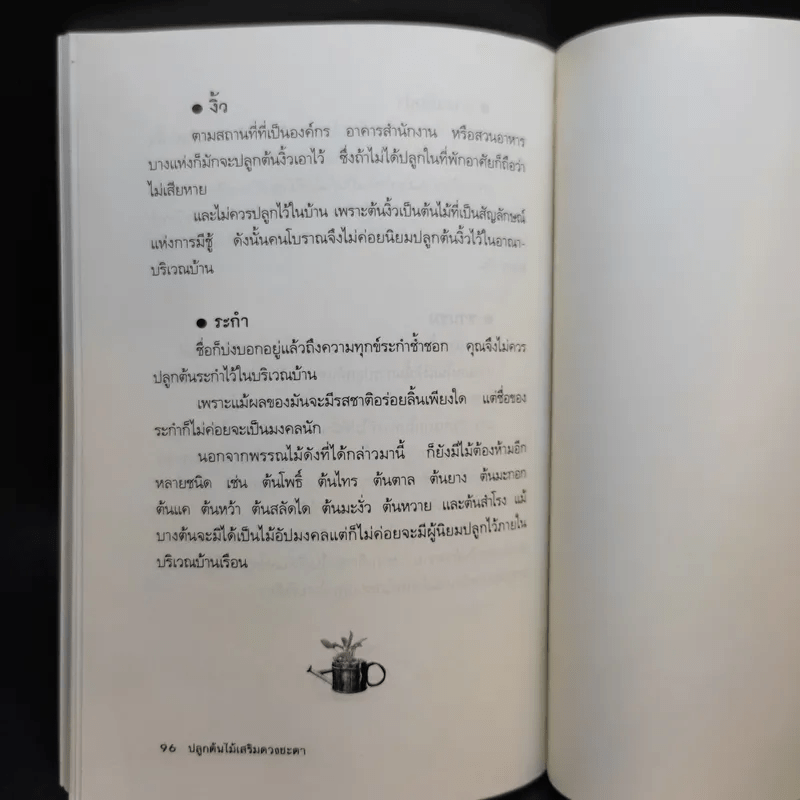 ● งิ้ว
ตามสถานที่ที่เป็นองค์กร อาคารสำนักงาน หรือสวนอาหาร
บางแห่งก็มักจะปลูกต้นงิ้วเอาไว้ ซึ่งถ้าไม่ได้ปลูกในที่พักอาศัยก็ถือว่า
ไม่เสียหาย
และไม่ควรปลูกไว้ในบ้าน เพราะต้นงิ้วเป็นต้นไม้ที่เป็นสัญลักษณ์
แห่งการมีชู้ ดังนั้นคนโบราณจึงไม่ค่อยนิยมปลูกต้นงิ้วไว้ในอาณา-
บริเวณบ้าน
● ระกำ
ชื่อก็บ่งบอกอยู่แล้วถึงความทุกข์ระกำช้ำชอก คุณจึงไม่ควร
ปลูกต้นระกำไว้ในบริเวณบ้าน
เพราะแม้ผลของมันจะมีรสชาติอร่อยลิ้นเพียงใด แต่ชื่อของ
ระกำก็ไม่ค่อยจะเป็นมงคลนัก
นอกจากพรรณไม้ดังที่ได้กล่าวมานี้ ก็ยังมีไม้ต้องห้ามอีก
หลายชนิด เช่น ต้นโพธิ์ ต้นไทร ต้นตาล ต้นยาง ต้นมะกอก
ต้นแค ต้นหว้า ต้นสลัดได ต้นมะงั่ว ต้นหวาย และต้นสำโรง แม้
บางต้นจะมิได้เป็นไม้อัปมงคลแต่ก็ไม่ค่อยจะมีผู้นิยมปลูกไว้ภายใน
บริเวณบ้านเรือน
96 ปลูกต้นไม้เสริมดวงชะตา